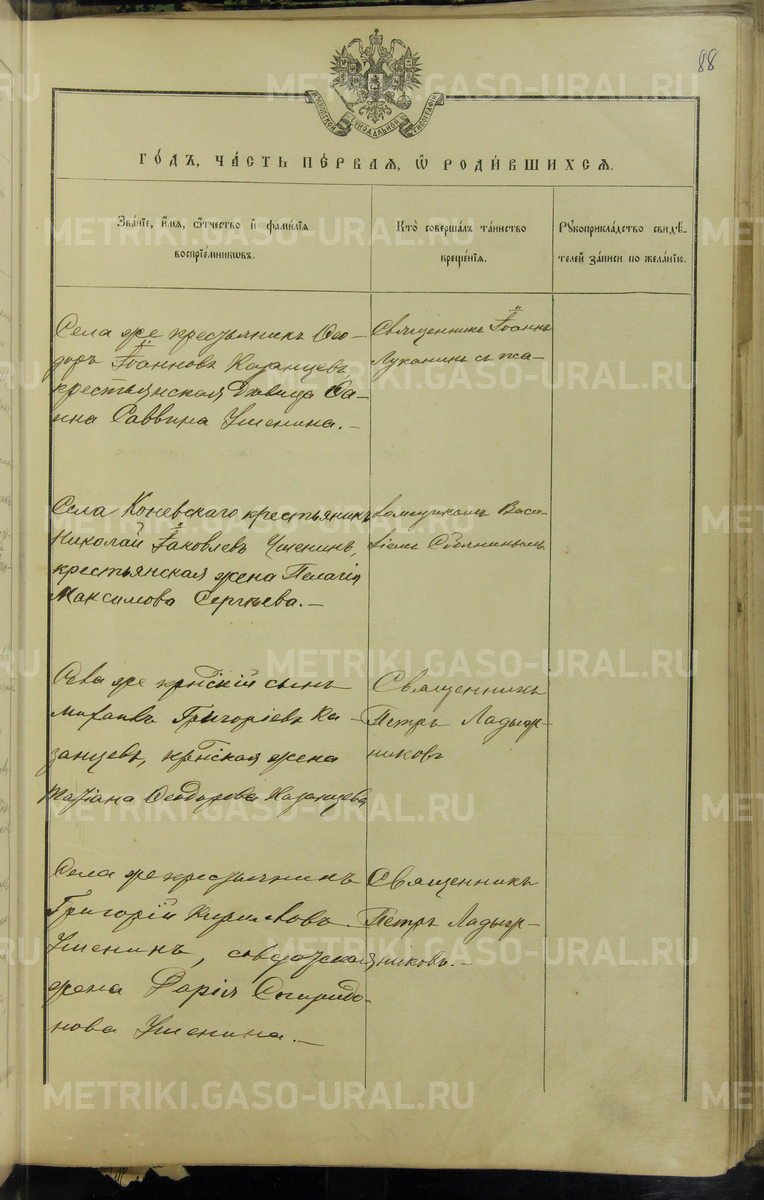 88
СѴНОДАЛЬНОЙ ТИПОГРАФІИ
ГО́ДЪ, ЧА́СТЬ ПЕ́РВАѦ, Ѡ҆ РОДИ́ВШИХСѦ.
Зва́нїе, и҆́мѧ, ѻ҆́тчество и҆ фами́лїѧ
воспрїе́мникѡвъ.
Кто̀ соверша́лъ та́инство
креще́нїѧ.
Рꙋкоприкла́дство свидѣ́-
телей за́писи по жела́нїю.
Села же крестьянинъ Ѳео-
доръ Іоанновъ Казанцевъ,
крестьянская дѣвица Ѳа-
ина Саввина Ушенина. —
Священникъ Іоаннъ
Луканинъ съ пса-
Села Коневскаго крестьянинъ
Николай Іаковлевъ Ушенинъ,
крестьянская жена Пелагія
Максимова Сергѣева. —
ломщикомъ Васи-
ліемъ
Села же кр̃нскій сынъ
Михаилъ Григоріевъ Ка-
занцевъ, кр̃нская жена
Татіана Ѳеодорова Казанцева
Священникъ
Петръ Ладыж-
никовъ
Села же крестьянинъ
Григорій Кирилловъ
Ушенинъ, солдатская
жена Дарія Спиридо-
нова Ушенина. —
Священникъ
Петръ Ладыж-
никовъ. —
METRIKI.GASO-URAL.RU